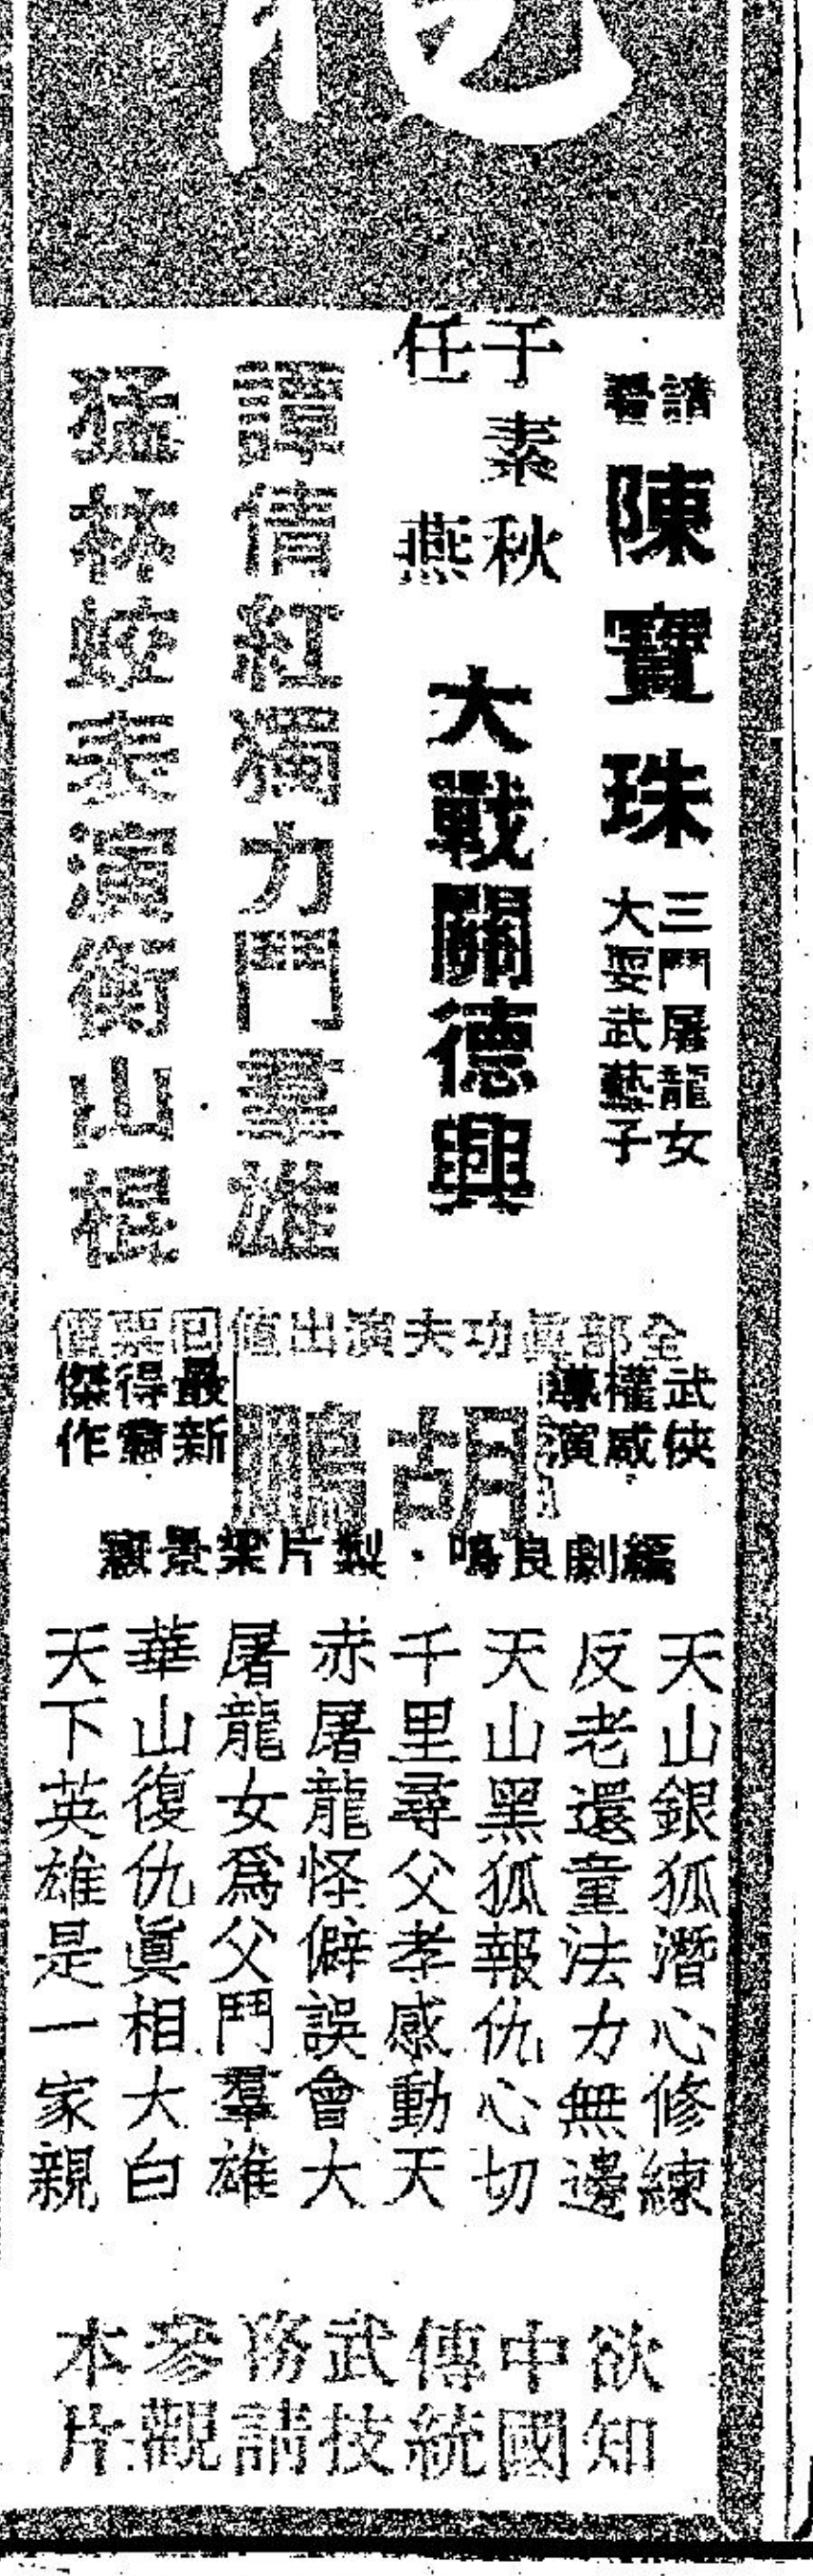 請看
陳寶珠
三鬥屠龍女
大耍武藝子
于素秋
任燕
大戰關德興
譚倩紅獨力鬥羣雄
林蛟表演衡山棍
全部眞功夫演出值回票價
武俠權威導演
胡鵬
最新得意傑作
編劇良鳴・製片梁景
天山銀狐潛心修練
反老還童法力無邊
天山黑狐報仇心切
千里尋父孝感動天
赤屠龍怪僻誤會大
屠龍女爲父鬥羣雄
華山復仇眞相大白
天下英雄是一家親
欲知中國傳統武技務請參觀本片